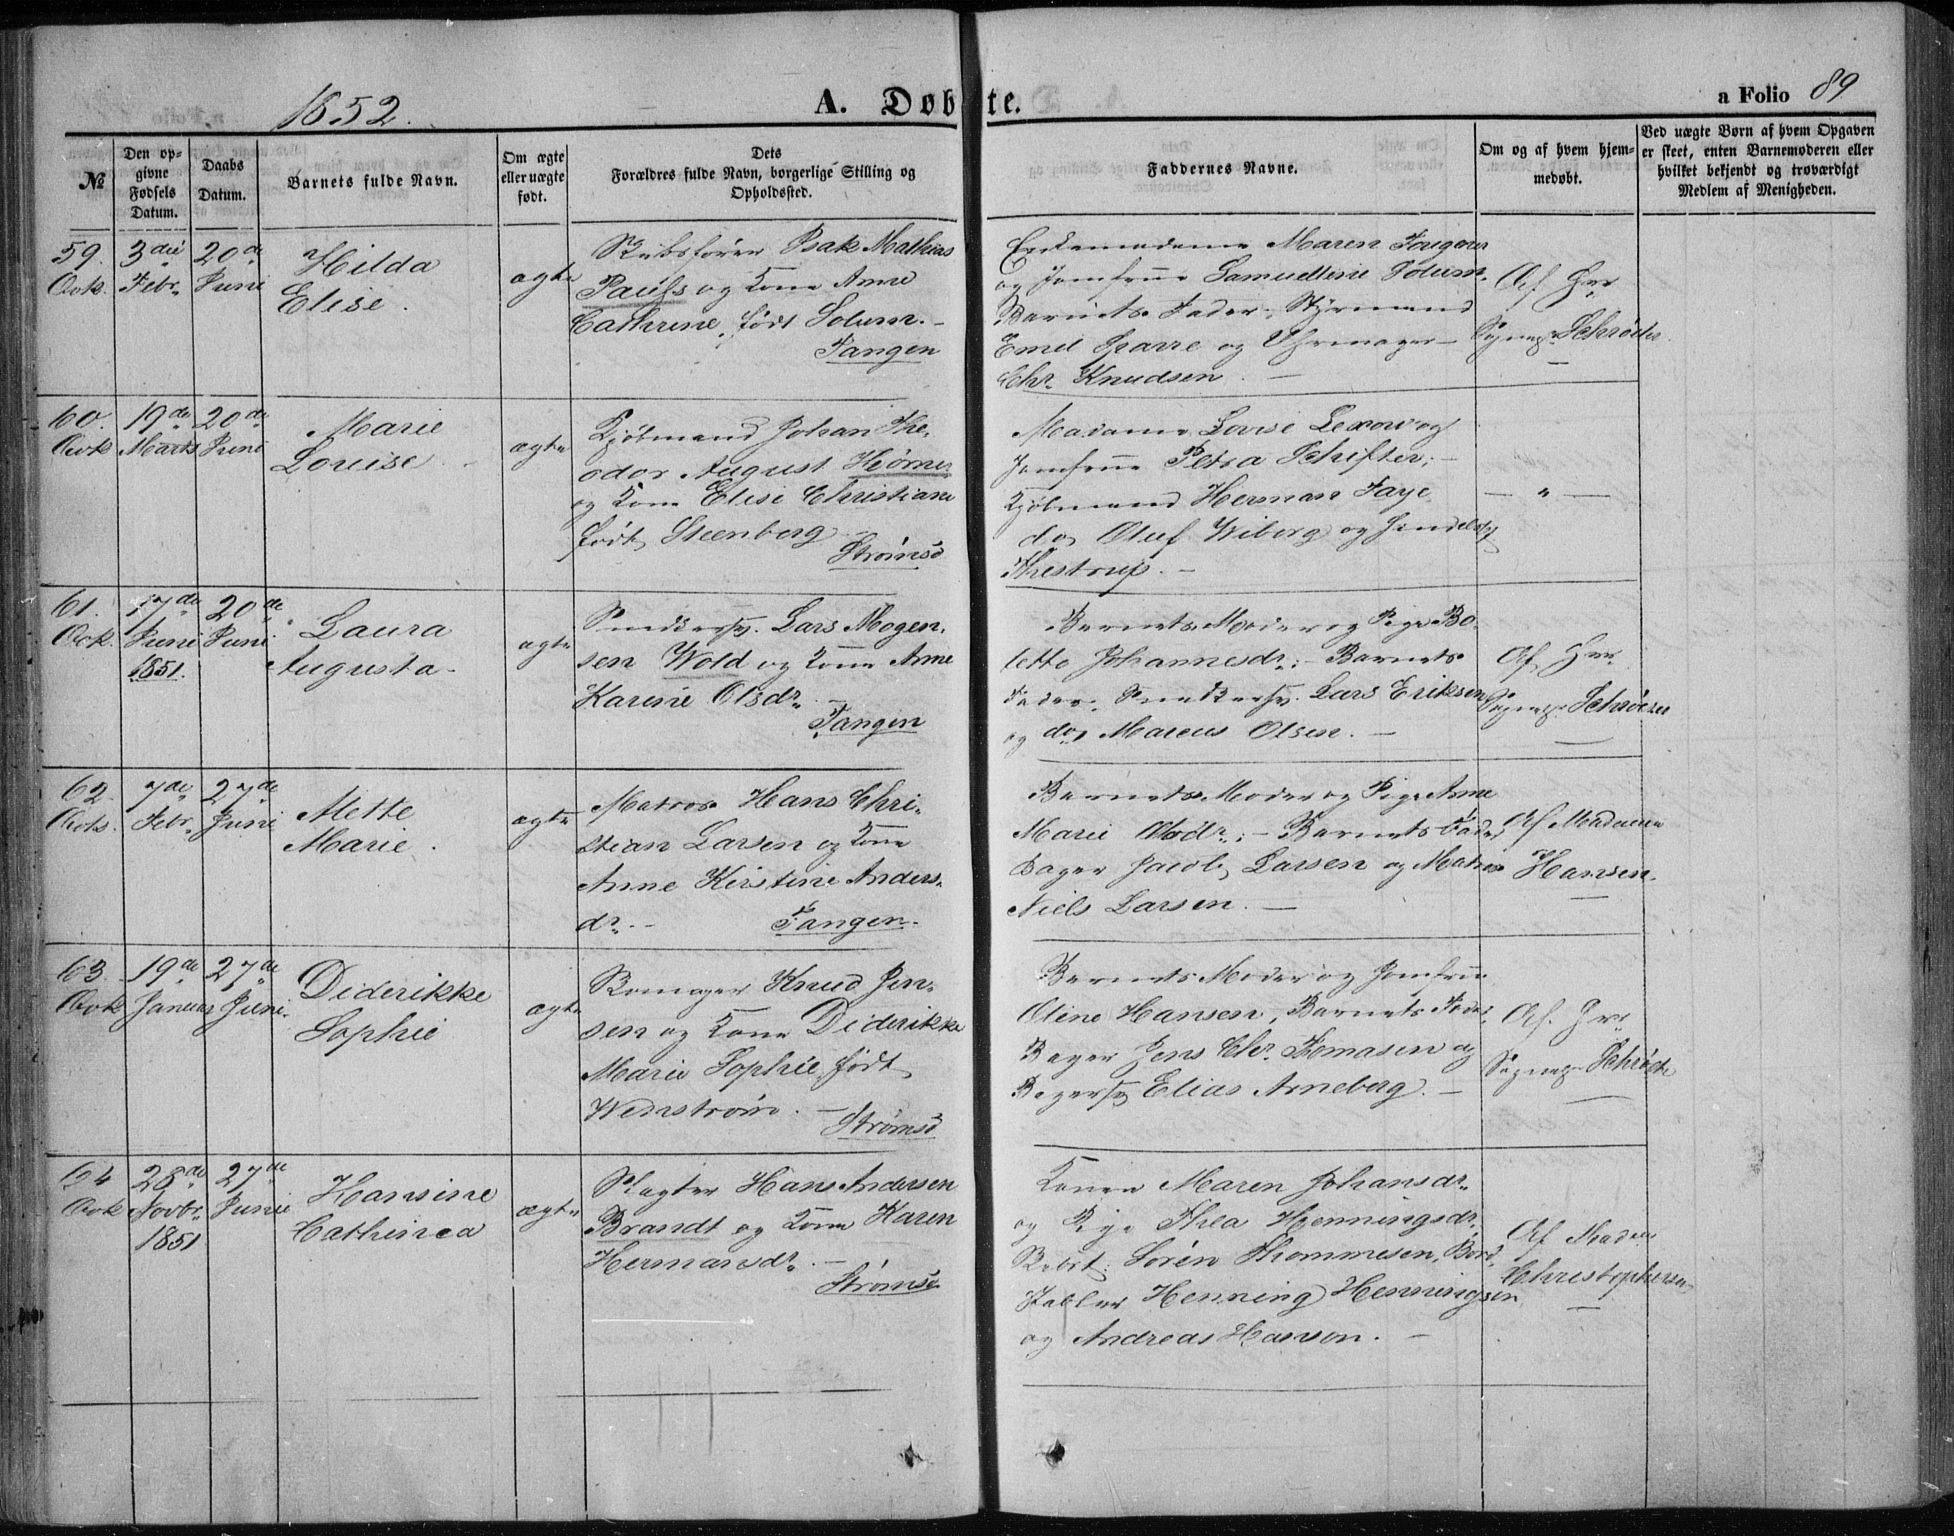 1852.
A. Døbte.
a Folio 89
№
Den opgivne Fødsels Datum.
Daabs Datum.
Barnets fulde Navn.
Om ægte eller uægte født.
Dets Forældres fulde Navn, borgerlige Stilling og Opholdssted.
Faddernes Navne.
Om og af hvem hjemmedøbt.
Ved uægte Børn af hvem Opgaven er skeet, enten Barnemoderen eller hvilket bekjendt og troværdigt Medlem af Menigheden.
59.
3die Febr.
20de Juni
Hilda
Elise.
ægte
Skibsfører Isak Mathias
Pauls og Kone Anne
Cathrine, født Solum.
Tangen
og Jomfrue Samueline Solum.
Barnets Fader, Styrmand
Emil Sparre og Uhrmager
Chr. Knudsen.
Af Hrr
Sognep. Schrøder
60.
19de Marts
20de Juni
Marie
Louise
ægte
Kjøbmand Johan The-
odor August Hiorner
og Kone Elise Christiane
født Steenberg
Strømsø
Madame Lovise Lexow og
Jomfrue Petra Schifter;
Kjøbmand Herman Faye
do Oluf Wiberg og Handelsf.
Thestrup.
— " —
61.
17de Juni 1851.
20de Juni
Laura
Augusta
ægte
Snedkersv. Lars Mogen-
sen Wold og Kone Anne
Karine Olsdr.
Tangen
Barnets Moder og Pige Bo-
lette Johannesdr; Barnets
Fader, Snedkersv. Lars Eriksen
og do Marcus Olsen.
Af Hrr
Sognep. Schrøder
62
7de Febr.
27de Juni
Mette
Marie.
ægte
Matros Hans Chri-
stian Larsen og Kone
Anne Kirstine Anders-
dr.
Tangen.
Barnets Moder og Pige Anne
Marie Olsdr; Barnets Fader,
Bager Jacob Larsen og Matros
Niels Larsen.
Af Madame
Hansen.
63.
19de Januar
27de Juni.
Diderikke
Sophie
ægte
Knud Jen-
sen og Kone Diderikke
Marie Sophie født
Wenstrøm.
Strømsø
Barnets Moder og Jomfrue
Oline Hansen, Barnets Fader,
Bager Jens Chr. Tomasen og
Bagersv. Elias Arneberg.
Af Hrr
Sognep. Schrøder
64
28de Novbr. 1851
27de Juni
Hansine
Cathinca
ægte
Slagter Hans Andersen
Brandt og Kone Karen
Hermansdr.
Strømsø
Konen Maren Johansdr.
og Pige Thea Henningsdr.
Søren Thommesen, Bord-
stabler Henning Henningsen
og Andreas Hanson.
Af Madame
Christophersen